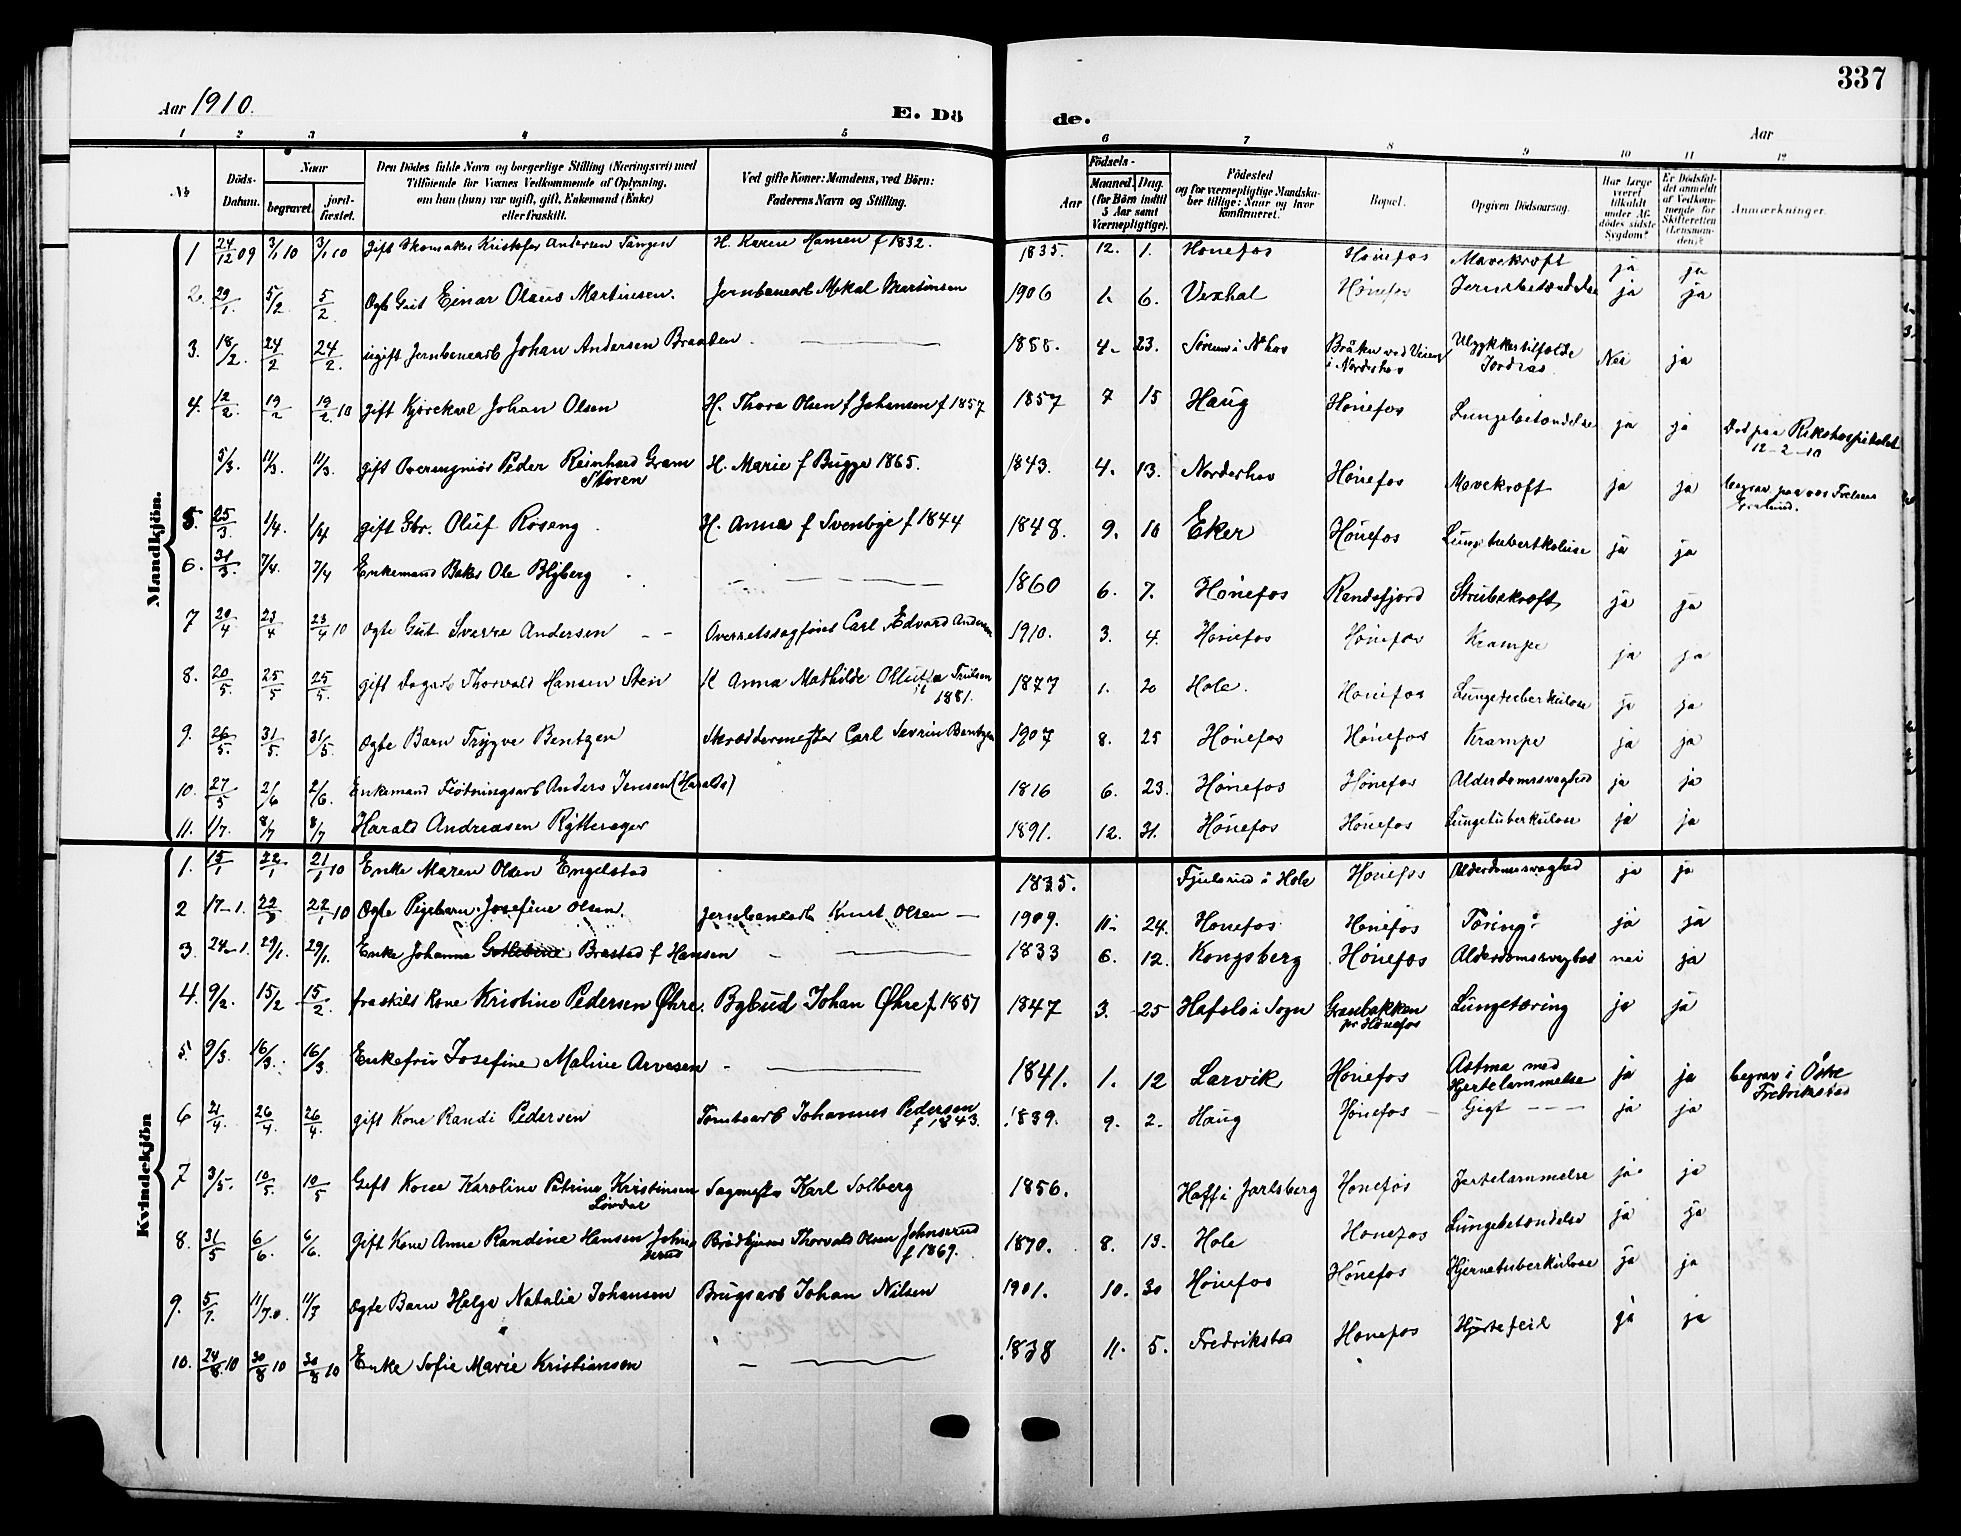 337
Aar 1910.
E. Dö
de.
Aar
1 2 3 4 5 6 7 8 9 10 11 12
No Döds-Datum. Naar begravet. jord-fæstet. Den Dödes fulde Navn og borgerlige Stilling (Næringsvei) med Tilföiende for Voxnes Vedkommende af Oplysning, om han (hun) var ugift, gift, Enkemand (Enke) eller fraskilt. Ved gifte Koner: Mandens, ved Börn: Faderens Navn og Stilling. Födsels- Aar Maaned. Dag. (for Börn indtil 5 Aar samt Værnepligtige). Födested og for værnepligtige Mandskaber tillige: Naar og hvor konfirmeret. Bopæl. Opgiven Dödsaarsag. Har Læge været tilkaldt under Afdödes sidste Sygdom? Er Dödsfaldet anmeldt af Vedkommende for Skifteretten (Lensmanden)? Anmærkninger.
Mandkjön.
1 24/12 09 3/1 10 3/1 10 gift Skomaker Kristofer Andersen Tangen H. Karen Hansen f 1832. 1835. 12. 1. Hønefos Hønefos Mavekræft ja ja
2. 29/1. 5/2 5/2 Ægte Gut Einar Olaus Martinsen. Jernbanearb Mikal Martinsen 1906 1. 6. Vexhal Hønefos Jernebetændelse ja ja
3. 18/2. 24/2 24/2. ugift Jernbanearb Johan Andersen Braaten 1888. 4. 23. i N.hov Bråten ved Veien i Norderhov Ulykkestilfælde Jordras Nei ja
4. 12/2. 19/2 19/2 10 gift Kjørekarl Johan Olsen H. Thora Olsen f Johansen f 1857 1857 7 15 Haug Hønefos Lungebetændelse ja ja Død paa Rikshospitalet 12-2-10
5/3. 11/3. 11/3. gift Overingniør Peder Reinhard Gram Støren H. Marie f Bugge 1865. 1843. 4. 13. Norderhov Hønefos Mavekræft ja ja begrav. paa vor Frelsers Gravlund.
5. 25/3. 1/4. 1/4 gift Gbr. Oluf Roseng H. Anna f Svenbye f 1844 1848. 9. 10 Eker Hønefos Lungetuberkolose ja ja
6. 31/3. 7/4. 7/4 Enkemand Baker Ole Blyberg 1860 6. 7. Hønefos Randsfjord Strubekræft ja ja
7 20/4 23/4 23/4 10 Ægte Gut Sverre Andersen Overretssagfører Carl Edvard Andersen 1910. 3. 4. Hønefos Hønefos Krampe ja ja
8. 20/5. 25/5 25/5. gift Dagarb Thorvald Hansen Sten H Anna Mathilde 1881. 1877 1. 20 Hole. Hønefos Lungetuberkulose ja ja
9. 26/5. 31/5. 31/5. Ægte Barn Trygve Bentzen Skræddermester Carl Severin Bentzen 1907 8. 25 Hønefos Hønefos Krampe ja ja
10. 27/5 2/6 2/6. Enkemand Fløtningsarb Anders Jensen (Haralds) 1816 6. 23. Hønefos Hønefos Alderdomssvaghed ja ja
11. 1/7. 8/7 8/7 Harald Andreasen Rytterager 1891. 12. 31. Hønefos Hønefos Lungetuberkulose ja ja
Kvindekjön
1. 15/1 22/1 21/1 10 Enke Maren Olsen Engelstad 1835. Fjulsrud i Hole Hønefos Alderdomssvaghed ja ja
2 17-1. 22/1 22/1 10 Ægte Pigebarn Josefine Olsen. Jernbanearb Knut Olsen 1909. 11. 24. Hønefos Hønefos Tæring ja ja
3. 24-1. 29/1. 29/1. Enke Johanne Gotlebine Brastad f Hansen 1833 6. 12. Kongsberg Hønefos Alderdomssvaghed nei ja
4. 9/2. 15/2 15/2. fraskilt Kone Kristine Pedersen Øhre. Bybud Johan Øhre f 1851 1847 3. 25 Hafslo i Sogn Granbakken pr Hønefos Lungetæring ja ja
5. 9/3. 16/3. 16/3 Enkefru Josefine Maline Arvesen 1841. 1. 12 Larvik Hønefos Astma med Hjertelammelse ja ja begrav i Østre Fredrikstad
6 21/4. 26/4. 26/4. gift Kone Randi Pedersen Tomtearb Johannes Pedersen f 1843. 1839. 9. 2. Haug Hønefos Gigt ja ja
7 3/5. 10/5. 10/5 Gift Kone Karoline Petrine Kristinsen Sagmester Karl Solberg 1856. Hoff i Jarlsberg Hønefos Jertelammelse ja. ja
8. 31/5 6/6. 6/6. Gift Kone Anne Randine Hansen Johnsrud Brødkjører Thorvald Olsen Johnsrud f 1869. 1870. 8. 13. Hole Hønefos Lungebetændelse ja ja
9. 5/7. 11/7.0. 11/7 Ægte Barn Helga Natalia Johansen Brugsarb Johan Nilsen 1901. 10. 30 Hønefos Hønefos Hjernetuberkulose ja ja
10. 24/8 10 30/8 10 30/8 10 Enke Sofie Marie Kristiansen 1838 11. 5. Fredrikstad Hønefos Hjertefeil ja ja